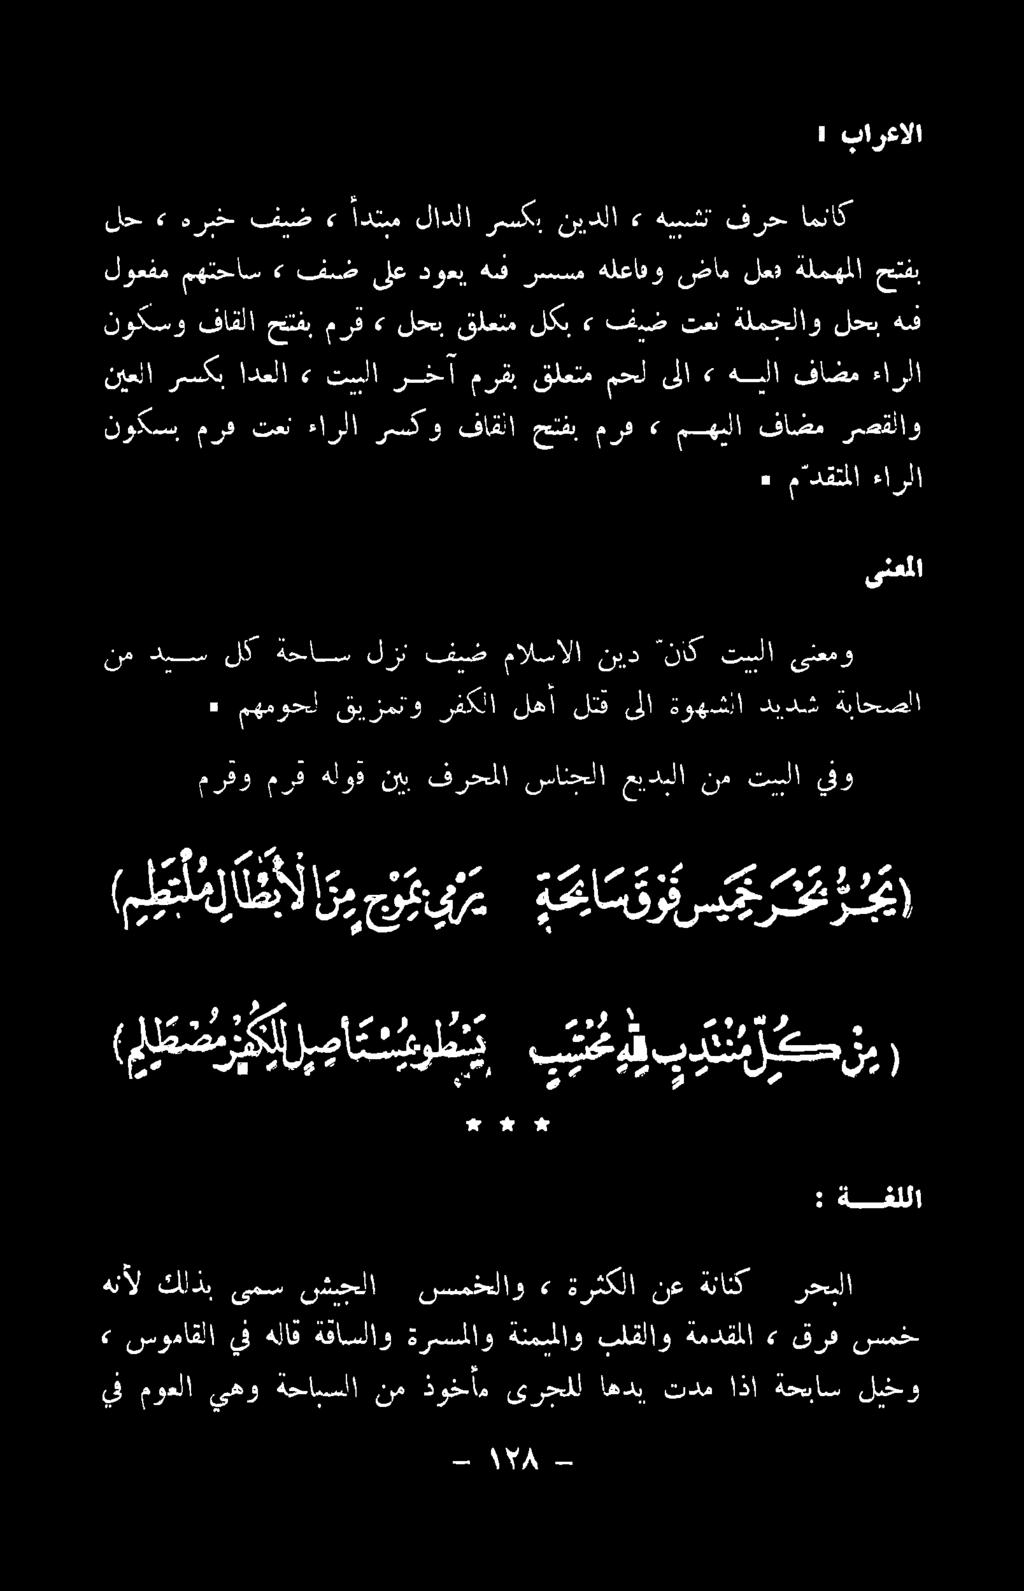 الاعراب :
كانما حرف تشبيه ، الدين بكسر الدال مبتدأ ، ضيف خبره ، حل
بفتح المهملة فعل ماض وفاعله مستتر فيه يعود على ضيف ، ساحتهم مفعول
فيه بحل والجملة نعت ضيف ، بكل متعلق بحل ، قرم بفتح القاف وسكون
الراء مضاف اليه ، الى لحم متعلق بقرم آخر البيت ، العدا بكسر العين
والقصر مضاف اليهم ، قرم بفتح القاف وكسر الراء نعت قرم بسكون
الراء المتقدّم .
المعنى
ومعنى البيت كانّ دين الاسلام ضيف نزل ساحة كل سيد من
الصحابة شديد الشهوة الى قتل أهل الكفر وتمزيق لحومهم .
وفي البيت من البديع الجناس المحرف بين قوله قرم وقرم
(يَجُرُّ بَحْرَ خَمِيسٍ فَوْقَ سَابِحَةٍ يَرْمِي بِمَوْجٍ مِنَ الْأَبْطَالِ مُلْتَطِمِ)
(مِنْ كُلِّ مُنْتَدِبٍ لِلّٰهِ مُحْتَسِبٍ يَسْطُو بِمُسْتَأْصِلٍ لِلْكُفْرِ مُصْطَلِمِ)
* * *
اللغة :
البحر كناية عن الكثرة ، والخميس الجيش سمى بذلك لأنه
خمس فرق ، المقدمة والقلب والميمنة والميسرة والساقة قاله في القاموس ،
وخيل سابحة اذا مدت يدها للجرى مأخوذ من السباحة وهي العوم في
- ١٢٨ -